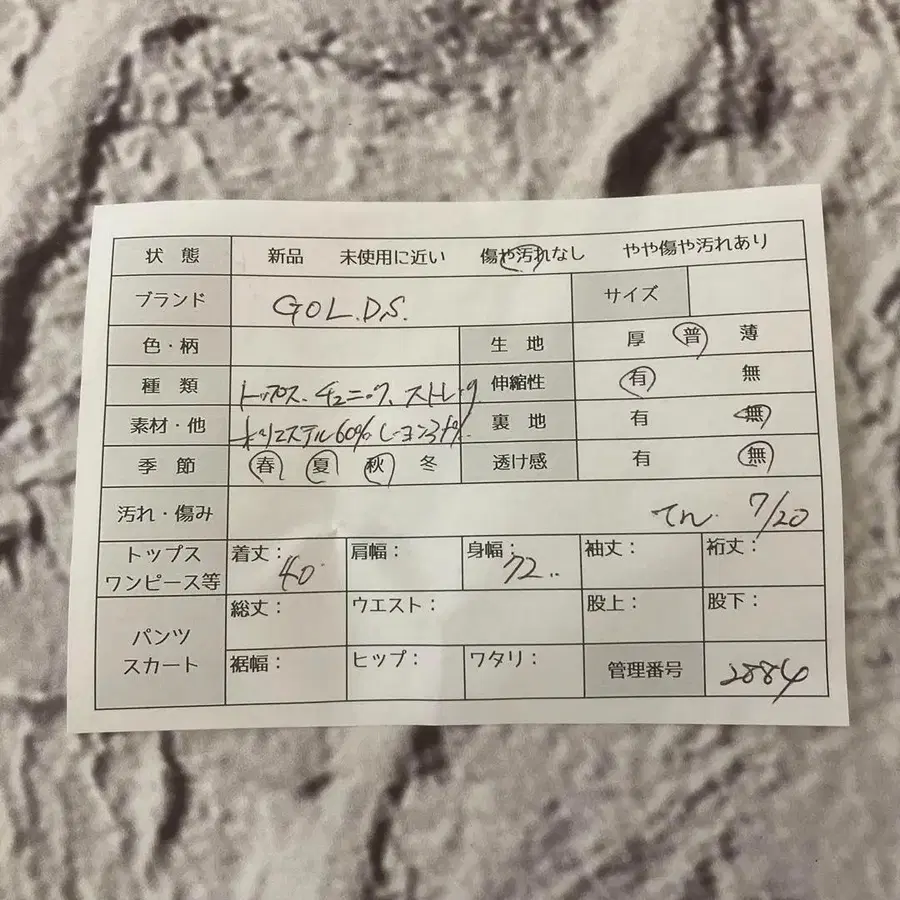 状態 新品 未使用に近い 傷や汚れなし やや傷や汚れあり
ブランド GOL.D.S. サイズ
色・柄 生地 厚 普 薄
種類 トップス、チュニック、ストレッチ 伸縮性 有 無
素材・他 ポリエステル60% レーヨン 裏地 有 無
季節 春 夏 秋 冬 透け感 有 無
汚れ・傷み 7/20
トップス ワンピース等 着丈: 40 肩幅: 身幅: 72 袖丈: 裄丈:
パンツ スカート 総丈: ウエスト: 股上: 股下:
裾幅: ヒップ: ワタリ: 管理番号 2884